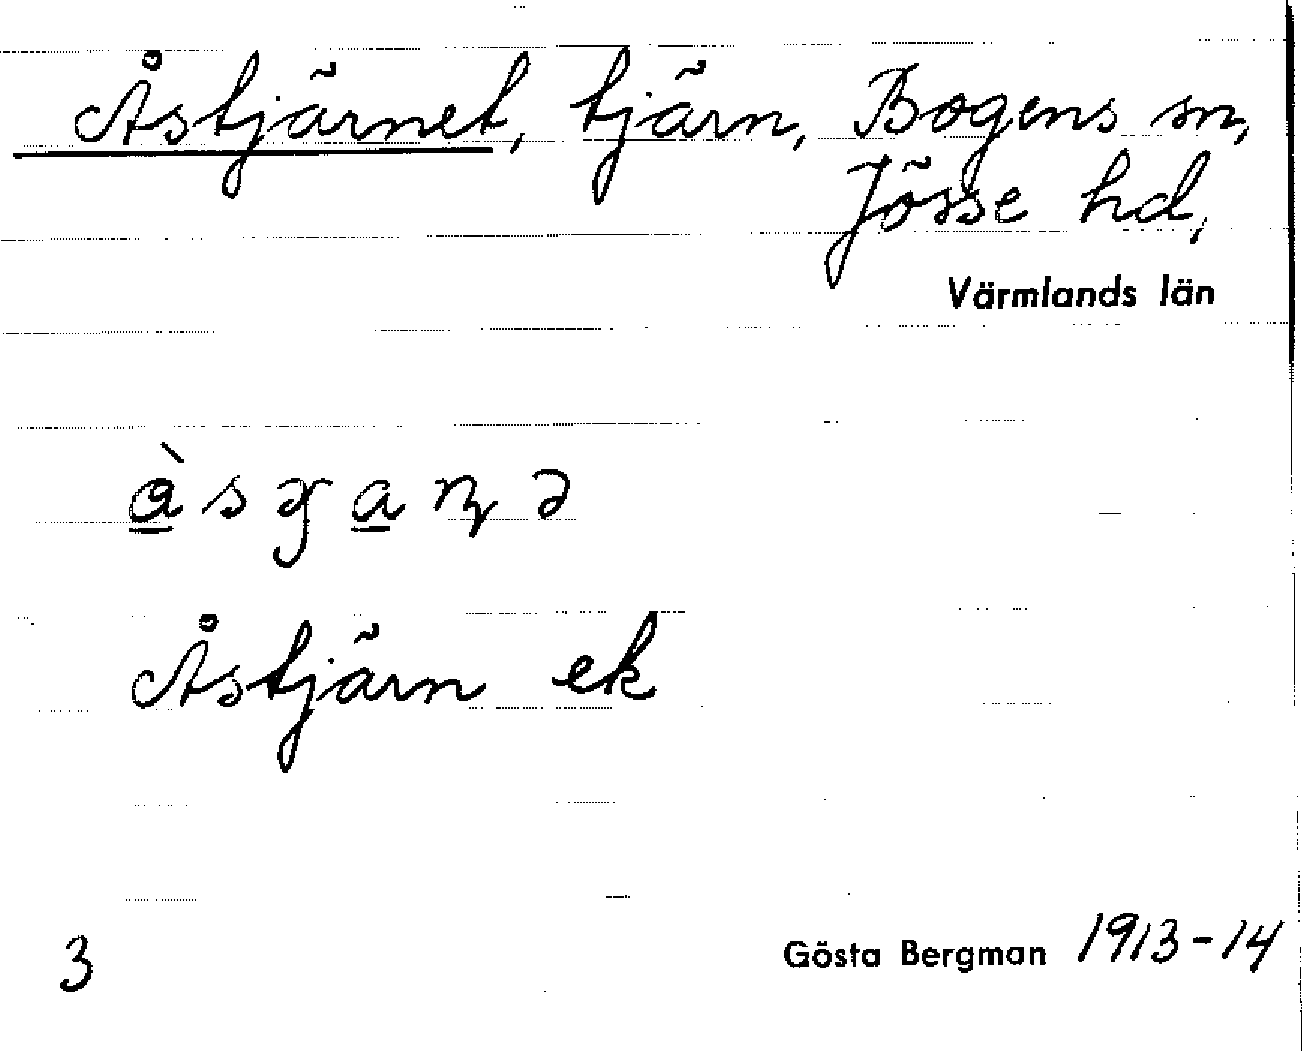 Åstjärnet, tjärn, Bogens sn,
Jösse hd,
Värmlands län
Åstjärn ek
3
Gösta Bergman 1913-14